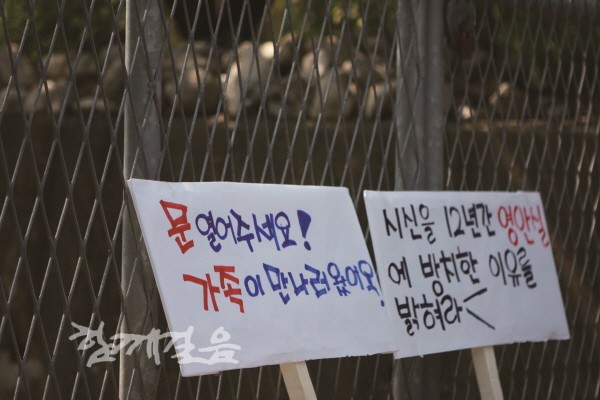 문 열어주세요!
가족이 만나러왔어요!
시신을 12년간 영안실
에 방치한 이유를
밝혀라
함께걸음